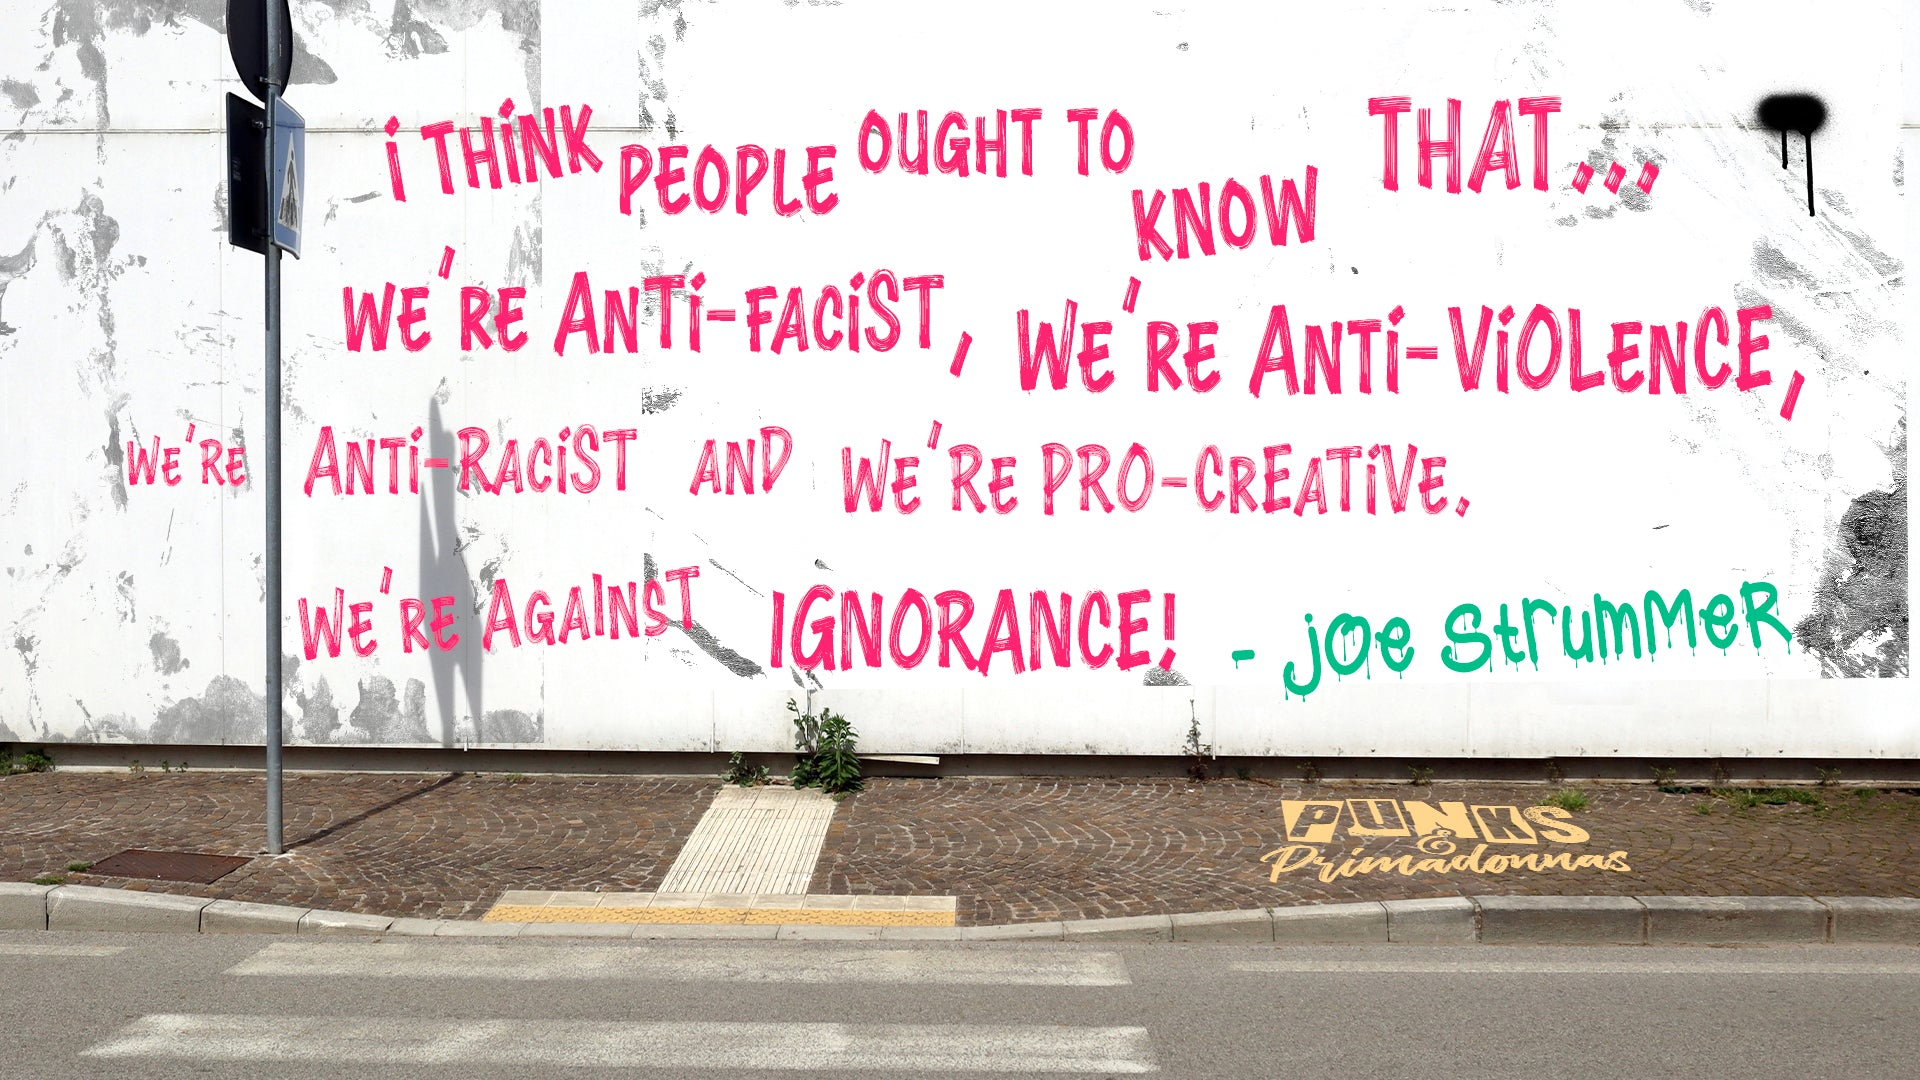 i THiNK PEOPLE OUGHT TO KNOW THAT...
WE'RE ANTi-FACiST, WE'RE ANTi-ViOLENCE,
WE'RE ANTi-RACiST AND WE'RE PRO-CREATiVE.
WE'RE AGAINST IGNORANCE! - jOe StrumMeR
PUNKS
&
Primadonnas